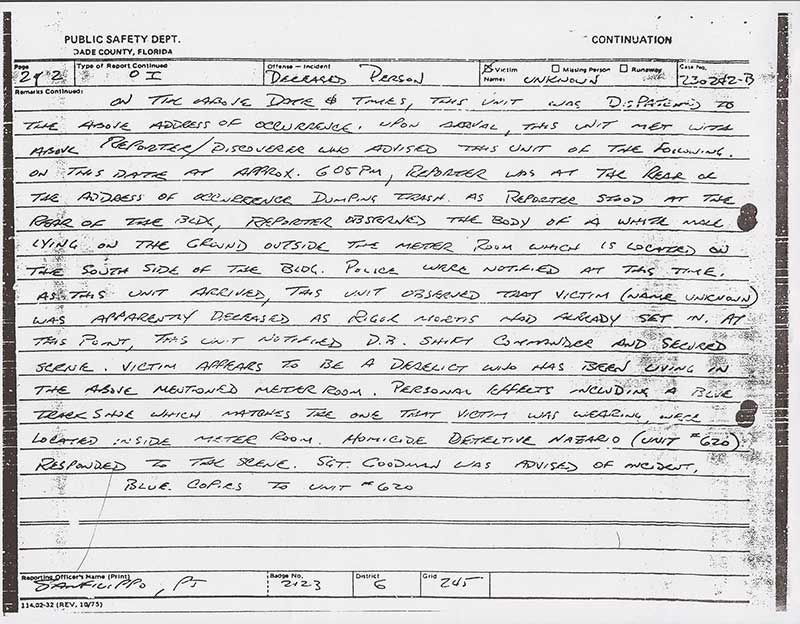 PUBLIC SAFETY DEPT. CONTINUATION
DADE COUNTY, FLORIDA
Page Type of Report Continued Offense - Incident Victim Missing Person Runaway Case No.
2 of 2 O I DECEASED PERSON Name: UNKNOWN 230242-B
Remarks Continued:
ON THE ABOVE DATE & TIMES, THIS UNIT WAS DISPATCHED TO
THE ABOVE ADDRESS OF OCCURRENCE. UPON ARRIVAL, THIS UNIT MET WITH
ABOVE REPORTER/DISCOVERER WHO ADVISED THIS UNIT OF THE FOLLOWING.
ON THIS DATE AT APPROX. 605PM, REPORTER WAS AT THE REAR OF
THE ADDRESS OF OCCURRENCE DUMPING TRASH. AS REPORTER STOOD AT THE
REAR OF THE BLDG, REPORTER OBSERVED THE BODY OF A WHITE MALE
LYING ON THE GROUND OUTSIDE THE METER ROOM WHICH IS LOCATED ON
THE SOUTH SIDE OF THE BLDG. POLICE WERE NOTIFIED AT THIS TIME.
AS THIS UNIT ARRIVED, THIS UNIT OBSERVED THAT VICTIM (NAME UNKNOWN)
WAS APPARENTLY DECEASED AS RIGOR MORTIS HAD ALREADY SET IN. AT
THIS POINT, THIS UNIT NOTIFIED D.B. SHIFT COMMANDER AND SECURED
SCENE. VICTIM APPEARS TO BE A DERELICT WHO HAS BEEN LIVING IN
THE ABOVE MENTIONED METER ROOM. PERSONAL EFFECTS INCLUDING A BLUE
TRACK SHOE WHICH MATCHES THE ONE THAT VICTIM WAS WEARING, WERE
LOCATED INSIDE METER ROOM. HOMICIDE DETECTIVE NAZARIO (UNIT #620)
RESPONDED TO THE SCENE. SGT. GOODMAN WAS ADVISED OF INCIDENT.
BLUE COPIES TO UNIT #620
Reporting Officer's Name (Print) Badge No. District Grid
SANFILIPPO, PJ 2123 6 245
114.02-32 (REV. 10/75)